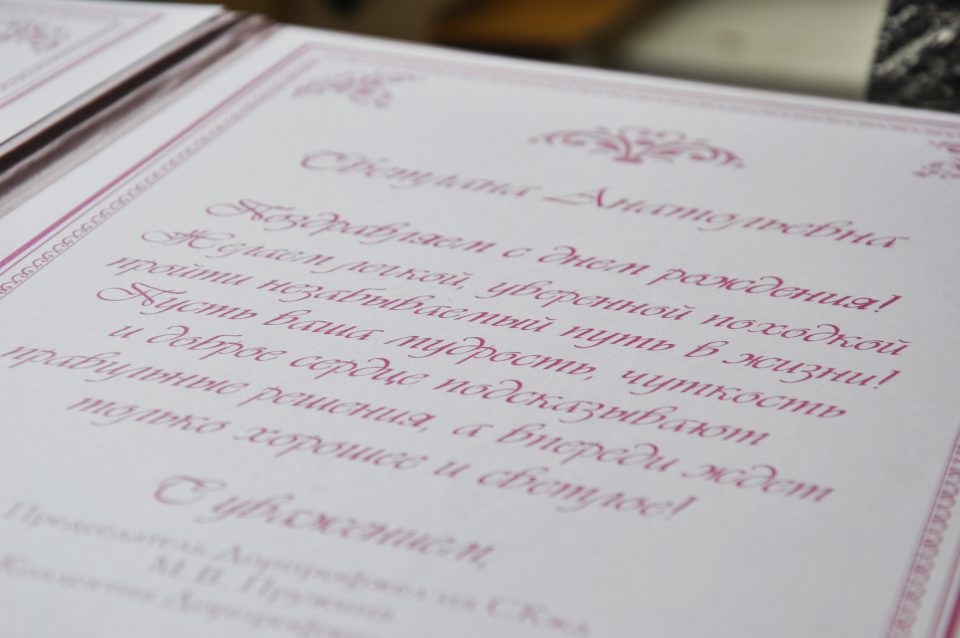 Светлана Анатольевна
Поздравляем с днем рождения!
Желаем легкой, уверенной походкой
пройти незабываемый путь в жизни!
Пусть ваша мудрость, чуткость
и доброе сердце подсказывают
правильные решения, а впереди ждет
только хорошее и светлое!
С уважением,
Председатель Дорпрофжел на СКжд
М.В. Пружина
Коллектив